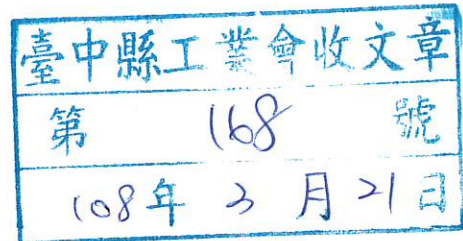 臺中縣工業會收文章
第 168 號
108年 3 月 21 日